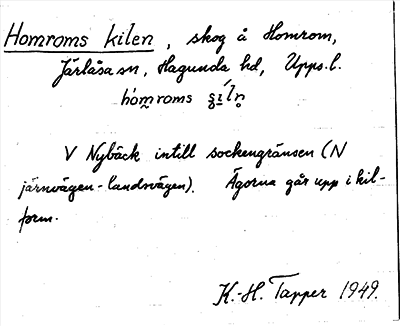 Homroms kilen, skog å Homrom,
Järlåsa sn, Hagunda hd, Upps. l.
hómroms
V Nybäck intill sockengränsen (N
järnvägen - landsvägen). Ägorna går upp i kil-
form.
K.-H. Tapper 1949.